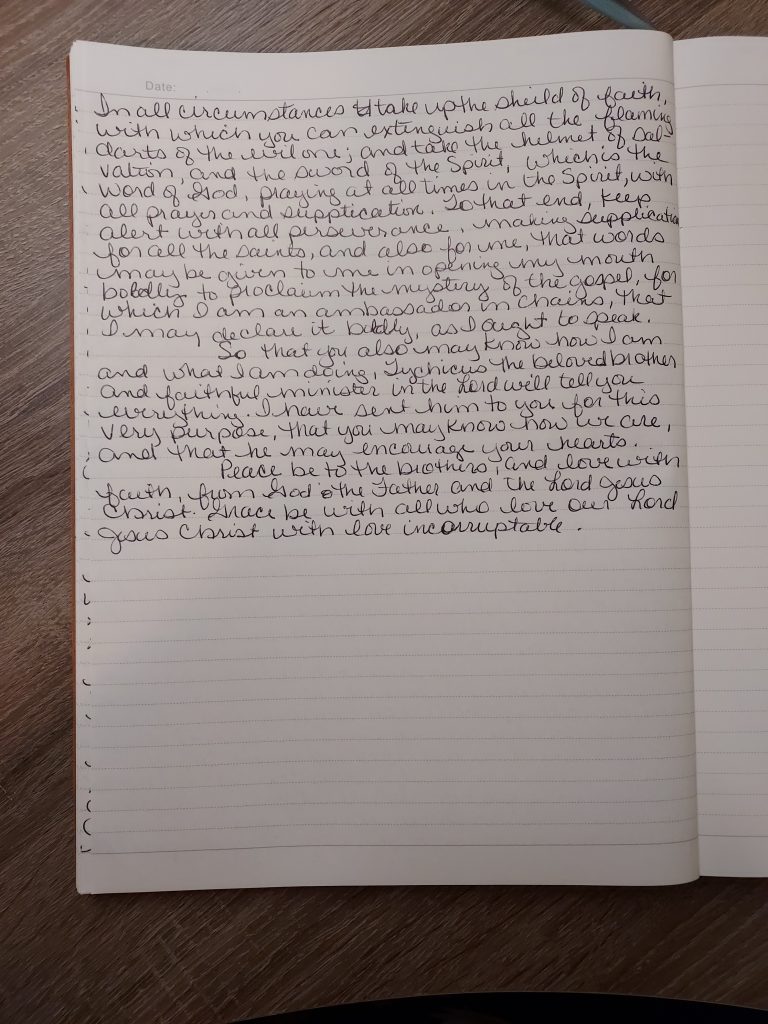 Date:
In all circumstances take up the sheild of faith,
with which you can extinguish all the flaming
darts of the evil one; and take the helmet of sal
vation, and the sword of the Spirit, which is the
Word of God, praying at all times in the Spirit, with
all prayer and supplication. To that end, keep
alert with all perseverance, making supplication
for all the saints, and also for me, that words
may be given to me in opening my mouth
boldly to proclaim the mystery of the gospel, for
which I am an ambassador in chains, that
I may declare it boldly, as I ought to speak.
So that you also may know how I am
and what I am doing, Tychicus the beloved brother
and faithful minister in the Lord will tell you
everything. I have sent him to you for this
very purpose, that you may know how we are,
and that he may encourage your hearts.
Peace be to the brothers, and love with
faith, from God the Father and the Lord Jesus
Christ. Grace be with all who love our Lord
Jesus Christ with love incorruptable.